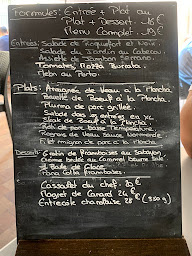 Formules: Entrée + Plat ou
Plat + Dessert
Menu Complet
Entrées: Salade de Roquefort et Noix.
Salade de Jardin au Cabecou.
Assiette de Jambon Serrano.
Tomates, Burrata.
Melon au Porto.
Plats: Araignée de Veau à la Plancha.
Bavette de Boeuf à la Plancha.
Pluma de porc grillée.
Salade
Steak de Boeuf à la Plancha.
de porc basse Température.
Rognons de Veau Sauce Normande.
Filet mignon de porc à la Plancha.
Desserts: Gratin de Framboises au Sabayon.
Crème brulée au Caramel beurre Salé.
Boule de Glace.
Pana Cotta Framboises.
Cassolet du chef. 20 €
Magret de Canard 24 €
Entrecote charolaise 28 € (350 g)